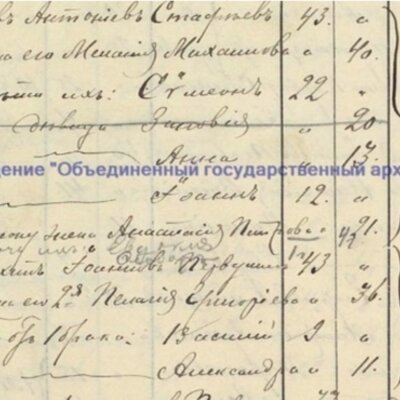 въ Антоніевъ Стафѣевъ 43. "
на его Меланія Михаилова " 40.
дѣти ихъ: Сѵмеонъ 22 "
дѣвица Зиновія " 20
Анна " 13.
дение "Объединенный государственный арх
Іоаннъ 12. "
жена Анастасія Петрова " 21.
Іоанновъ Первушинъ 43 "
на его 2я Пелагія Григоріева " 36.
отъ 1 брака: Василій 9 "
Александра " 11.